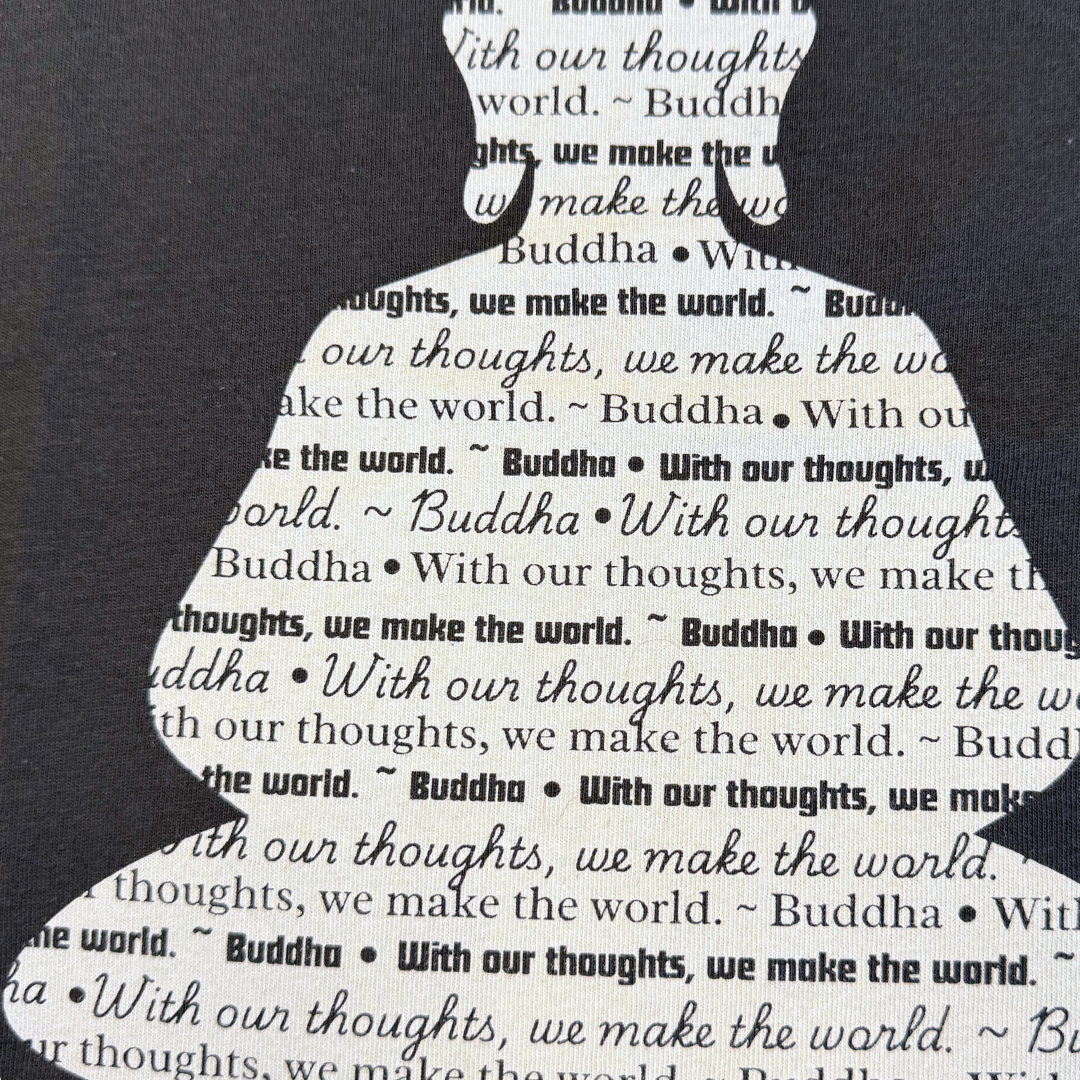 Buddha • With
With our thoughts
world. ~ Buddh
ghts, we make the w
w make the wo
Buddha • With
oughts, we make the world. ~ Budd
our thoughts, we make the wo
ake the world. ~ Buddha • With ou
ke the world. ~ Buddha • With our thoughts, w
world. ~ Buddha • With our thoughts
Buddha • With our thoughts, we make th
thoughts, we make the world. ~ Buddha • With our thoug
uddha • With our thoughts, we make the wo
th our thoughts, we make the world. ~ Budd
the world. ~ Buddha • With our thoughts, we make
ith our thoughts, we make the world.
r thoughts, we make the world. ~ Buddha • With
he world. ~ Buddha • With our thoughts, we make the world. ~
ha • With our thoughts, we make the world. ~ Bu
ur thoughts, we make the world. ~ Buddha • With